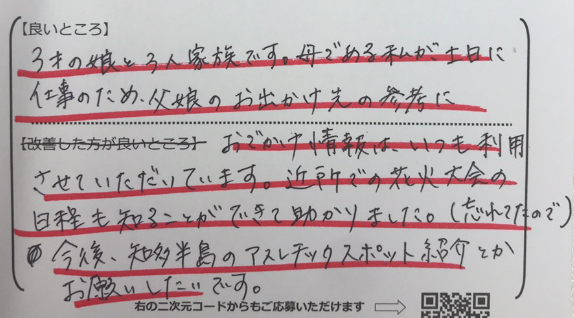 【良いところ】
3才の娘と3人家族です。母である私が土日に
仕事のため、父娘のお出かけ先の参考に
【改善した方が良いところ】 おでかけ情報はいつも利用
させていただいています。近所での花火大会の
日程も知ることができて助かりました。(忘れてたので)
今後、知多半島のアスレチックスポット紹介とか
お願いしたいです。
右の二次元コードからもご応募いただけます